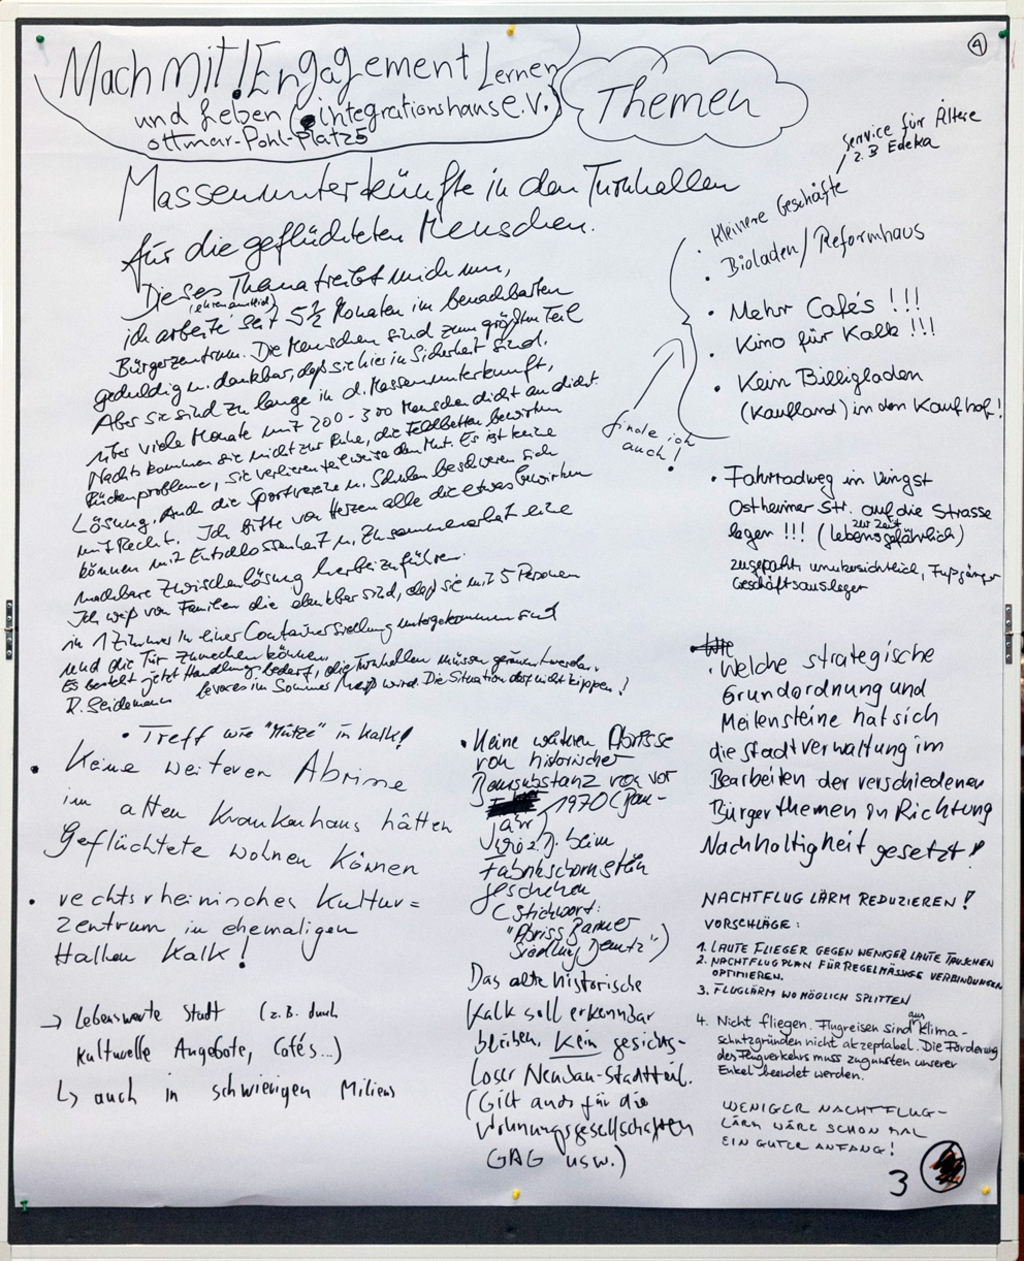 4
Mach mit! Engagement Lernen
und Leben (integrationshaus e.V.)
Ottmar-Pohl-Platz 5
Themen
Massenunterkünfte in den Turnhallen
für die geflüchteten Menschen.
Dieses Thema treibt mich um,
(ehrenamtlich)
ich arbeite seit 5 1/2 Monaten im benachbarten
Bürgerzentrum. Die Menschen sind zum größten Teil
geduldig u. dankbar, daß sie hier in Sicherheit sind.
Aber sie sind zu lange in d. Massenunterkunft,
über viele Monate mit 200-300 Menschen dicht an dicht.
Nachts kommen sie nicht zur Ruhe, die Feldbetten bewirken
Rückenprobleme, sie verlieren teilweise den Mut. Es ist keine
Lösung. Auch die Sportvereine u. Schulen beschweren sich
mit Recht. Ich bitte von Herzen alle die etwas bewirken
können mit Entschlossenheit u. Zusammenarbeit eine
machbare Zwischenlösung herbeizuführen.
Ich weiß von Familien die dankbar sind, daß sie mit 5 Personen
in 1 Zimmer in einer Containersiedlung untergekommen sind
und die Tür zumachen können.
Es besteht jetzt Handlungsbedarf, die Turnhallen müssen geräumt werden,
R. Seidemann bevor es im Sommer heiß wird. Die Situation darf nicht kippen!
Service für Ältere
z.B Edeka
· Kleinere Geschäfte
· Bioladen/Reformhaus
· Mehr Cafés !!!
· Kino für Kalk !!!
· Kein Billigladen
(Kaufland) in den Kaufhof!
finde ich
auch!
· Fahrradweg in Vingst
Ostheimer Str. auf die Strasse
legen !!! (zur Zeit lebensgefährlich)
zugeparkt, unübersichtlich, Fußgänger
Geschäftsausleger
· Welche strategische
Grundordnung und
Meilensteine hat sich
die Stadtverwaltung im
Bearbeiten der verschiedenen
Bürgerthemen in Richtung
Nachhaltigkeit gesetzt!
· Treff wie "Mütze" in Kalk!
· Keine weiteren Abrisse
im alten Krankenhaus hätten
Geflüchtete wohnen können
· rechtsrheinisches Kultur=
zentrum in ehemaligen
Hallen Kalk!
→ Lebenswerte Stadt (z.B. durch
kulturelle Angebote, Cafés...)
↳ auch in schwierigen Milieus
· Keine weiteren Abrisse
von historischer
Bausubstanz von vor
1970 (Bau-
jahr)
wie z.B. beim
Fabrikschornstein
geschehen
(Stichwort:
"Abriss Barmer
Siedlung Deutz")
Das alte historische
Kalk soll erkennbar
bleiben. Kein gesichts-
loser Neubau-Stadtteil.
(Gilt auch für die
Wohnungsgesellschaften
GAG usw.)
NACHTFLUGLÄRM REDUZIEREN!
VORSCHLÄGE:
1. LAUTE FLIEGER GEGEN WENIGER LAUTE TAUSCHEN
2. NACHTFLUGPLAN FÜR REGELMÄSSIGE VERBINDUNGEN
OPTIMIEREN.
3. FLUGLÄRM WO MÖGLICH SPLITTEN
4. Nicht fliegen. Flugreisen sind aus Klima-
schutzgründen nicht akzeptabel. Die Förderung
des Flugverkehrs muss zugunsten unserer
Enkel beendet werden.
WENIGER NACHTFLUG-
LÄRM WÄRE SCHON MAL
EIN GUTER ANFANG!
3